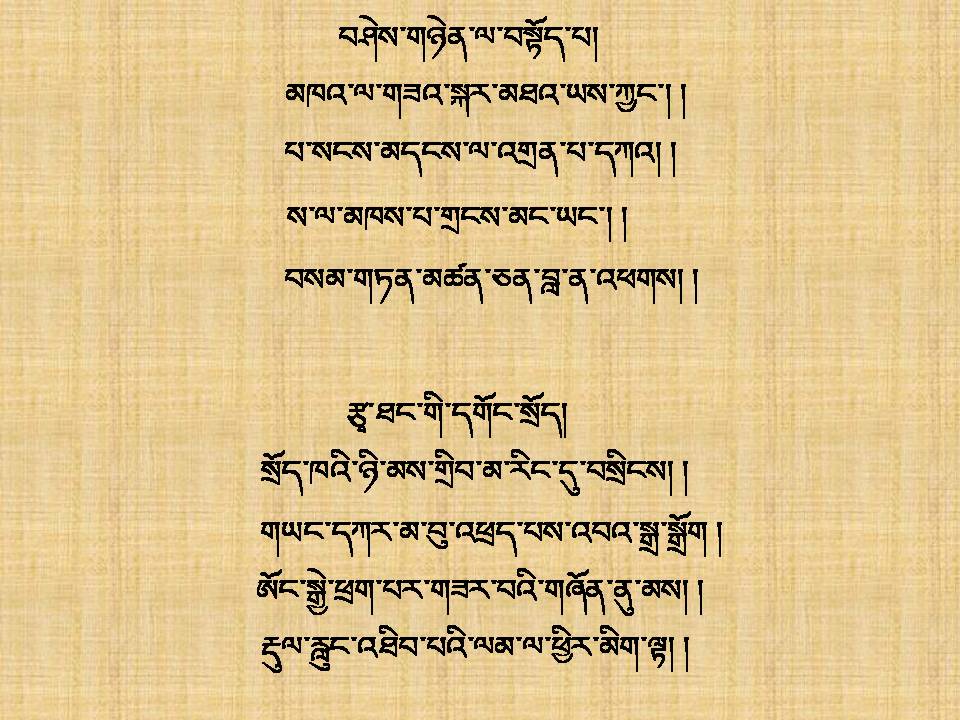 བཤེས་གཉེན་ལ་བསྟོད་པ།
མཁའ་ལ་གཟའ་སྐར་མཐའ་ཡས་ཀྱང་། །
པ་སངས་མདངས་ལ་འགྲན་པ་དཀའ། །
ས་ལ་མཁས་པ་གྲངས་མང་ཡང་། །
བསམ་གཏན་མཚན་ཅན་བླ་ན་འཕགས། །
རྩྭ་ཐང་གི་དགོང་སྲོད།
སྲོད་ཁའི་ཉི་མས་གྲིབ་མ་རིང་དུ་བསྲིངས། །
གཡང་དཀར་མ་བུ་འཕྲད་པས་འབའ་སྒྲ་སྒྲོག །
ཨོང་སྒྱེ་ཕྲག་པར་གཟར་བའི་གཞོན་ནུ་མས། །
རྡུལ་རླུང་འཐིབ་པའི་ལམ་ལ་ཕྱིར་མིག་ལྟ། །